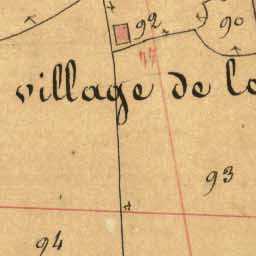 92
90
77
village de la
93
94